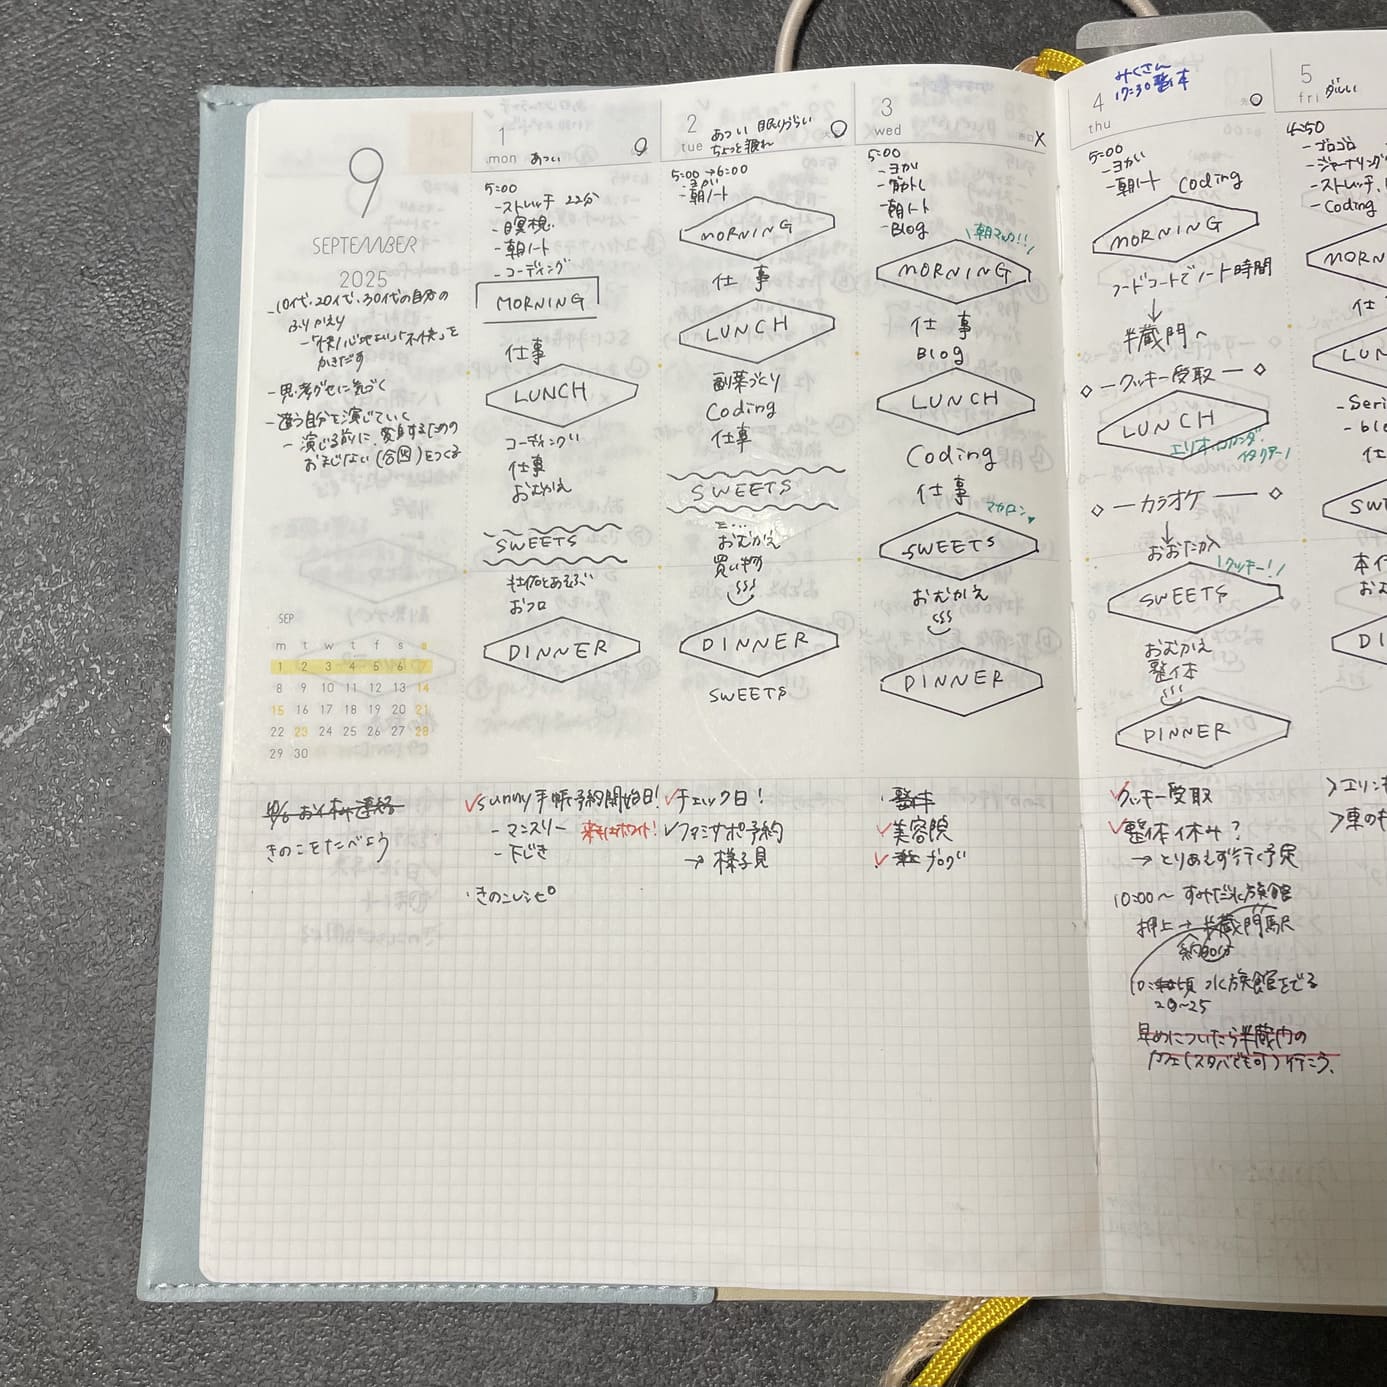 9
SEPTEMBER
2025
-10代、20代、30代の自分の
ふりかえり
-「快」心地よい、「不快」を
かきだす
-思考ぐせに気づく
-違う自分を演じていく
-演じる前に、変身するための
おまじない(合図)をつくる
SEP
m t w t f s s
1 2 3 4 5 6 7
8 9 10 11 12 13 14
15 16 17 18 19 20 21
22 23 24 25 26 27 28
29 30
きのこをたべよう
1
mon あつい
5:00
-ストレッチ 22分
-瞑想
-朝ノート
-コーディング
MORNING
仕事
LUNCH
コーディング
仕事
おむかえ
SWEETS
とあそぶ
おフロ
DINNER
✓sunny手帳予約開始日!
-マンスリー
ホワイト!
-下じき
・きのこレシピ
2
tue あつい 眠りづらい
ちょっと疲れ
5:00→6:00
-ヨガ
-朝ノート
MORNING
仕事
LUNCH
副菜づくり
Coding
仕事
SWEETS
おむかえ
買い物
DINNER
SWEETS
✓チェック日!
✓ファミサポ予約
→様子見
3
wed
X
5:00
-ヨガ
-筋トレ
-朝ノート
-Blog
\朝マック!!/
MORNING
仕事
Blog
LUNCH
Coding
仕事
マカロン
SWEETS
おむかえ
DINNER
・整体
✓美容院
✓ブログ
4
thu
みくさん
17:30 整体
5:00
-ヨガ
-朝ノート Coding
MORNING
フードコートでノート時間
↓
半蔵門へ
◇-クッキー受取-◇
LUNCH
◇-カラオケ-◇
↓
おおたかへ
\クッキー!/
SWEETS
おむかえ
整体
DINNER
✓クッキー受取
✓整体休み?
→とりあえず行く予定
10:00〜 すみだ水族館
押上→半蔵門駅
約30分
水族館をでる
20〜25
早めについたら半蔵門の
カフェ(スタバでも可)行こう、
5
fri だるい
4:50
-ゴロゴロ
-ジャーナリング
-ストレッチ
-Coding
MORN
仕
LUN
-blo
仕
SW
お
D